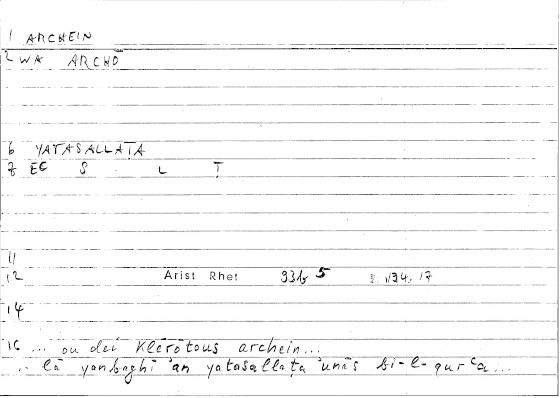 1 ARCHEIN
2 WA ARCHŌ
6 YATASALLAṬA
8 EE S L Ṭ
11
12 Arist Rhet 93b 5 134, 17
14
16 ... ou dei klērōtous archein...
.. lā yanbaghī 'an yatasallaṭa 'unās bi-l-qurʿa...